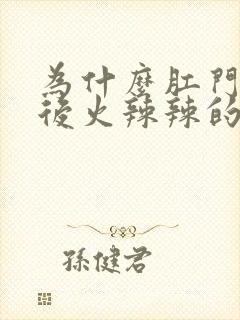 為什麼肛門
後火辣辣的
孫健君